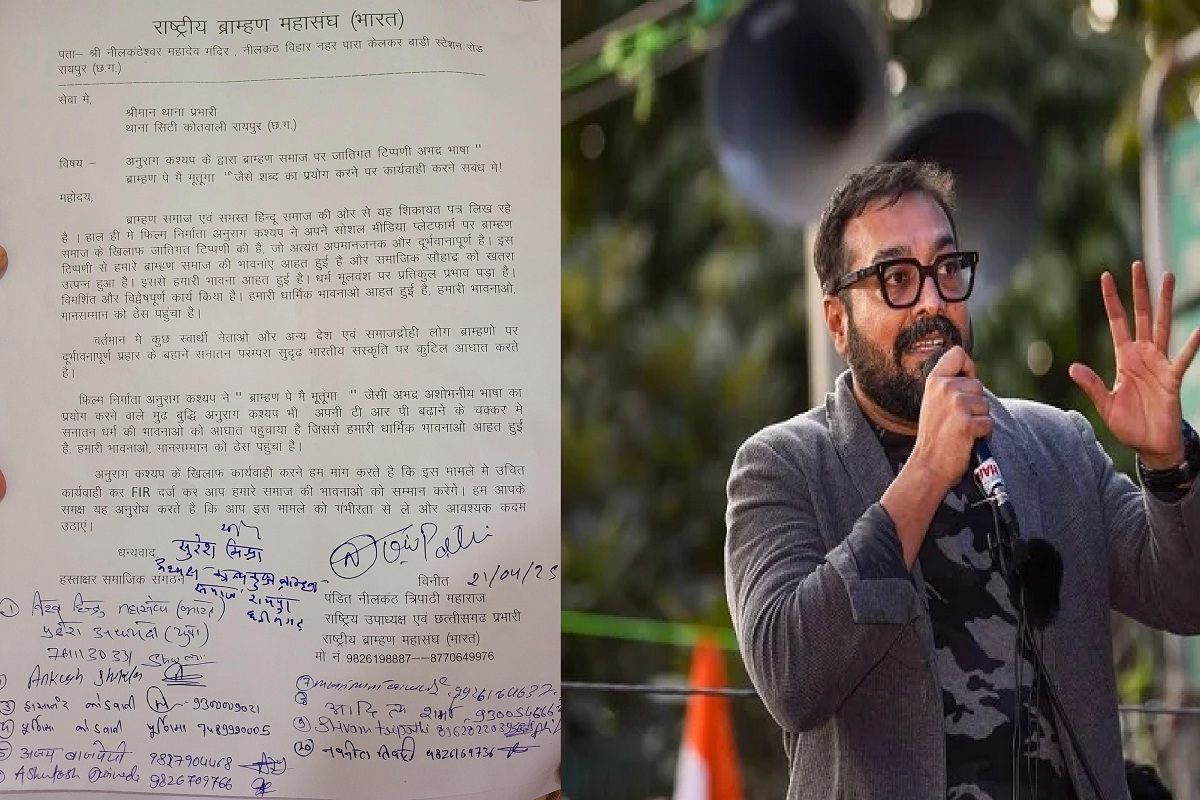 राष्ट्रीय ब्राम्हण महासंघ (भारत)
पता– श्री नीलकंठेश्वर महादेव मंदिर , नीलकंठ विहार नहर पारा केलकर बाड़ी स्टेशन रोड
रायपुर (छ.ग.)
सेवा मे,
श्रीमान थाना प्रभारी
थाना सिटी कोतवाली रायपुर (छ.ग.)
विषय – अनुराग कश्यप के द्वारा ब्राम्हण समाज पर जातिगत टिप्पणी अभद्र भाषा "
ब्राम्हण पे मै मूतूंगा " जैसे शब्द का प्रयोग करने पर कार्यवाही करने सबंध मे!
महोदय,
ब्राम्हण समाज एवं समस्त हिन्दू समाज की ओर से यह शिकायत पत्र लिख रहे
है । हाल ही मे फिल्म निर्माता अनुराग कश्यप ने अपने सोशल मीडिया प्लेटफार्म पर ब्राम्हण
समाज के खिलाफ जातिगत टिप्पणी की है, जो अत्यंत अपमानजनक और दूर्भवानापूर्ण है। इस
टिप्पणी से हमारे ब्राम्हण समाज की भावनाएं आहत हुई है और समाजिक सौहाद्र को खतरा
उत्पन्न हुआ है। इससे हमारी भावना आहत हुई है। धर्म मूलवंश पर प्रतिकुल प्रभाव पड़ा है।
विमर्शित और विद्वेषपूर्ण कार्य किया है। हमारी धार्मिक भावनाओ आहत हुई है, हमारी भावनाओ,
मानसम्मान को ठेस पहुंचा है।
वर्तमान मे कुछ स्वार्थी नेताओ और अन्य देश एवं समाजद्रोही लोग ब्राम्हणो पर
दूर्भावनापूर्ण प्रहार के बहाने सनातन परम्परा सुदृढ़ भारतीय संस्कृति पर कुटिल आधात करते
है।
फिल्म निर्माता अनुराग कश्यप ने " ब्राम्हण पे मै मूतूंगा " जैसी अभद्र अशोभनीय भाषा का
प्रयोग करने वाले मुढ बुद्धि अनुराग कश्यप भी अपनी टी आर पी बढाने के चक्कर मे
सनातन धर्म की भावनाओ को आघात पहुचाया है जिससे हमारी धार्मिक भावनाओ आहत हुई
है, हमारी भावनाओ, मानसम्मान को ठेस पहुंचा है।
अनुराग कश्यप के खिलाफ कार्यवाही करने हम मांग करते है कि इस मामले मे उचित
कार्यवाही कर FIR दर्ज कर आप हमारे समाज की भावनाओ को सम्मान करेगे। हम आपके
समक्ष यह अनुरोध करते है कि आप इस मामले को गंभीरता से ले ओर आवश्यक कदम
उठाएं।
धन्यवाद, सुरेश मिश्रा
हस्ताक्षर समाजिक संगठन
विनीत 21/04/25
पंडित नीलकंठ त्रिपाठी महाराज
राष्ट्रिय उपाध्यक्ष एवं छत्तीसगढ प्रभारी
राष्ट्रीय ब्राम्हण महासंघ (भारत)
मो नं 9826198887—8770649976
Ankush Shukla
9300009021
पूर्णिमा
अजय बाजपेयी 9827904468
Ashutosh Dwivedi 9826709766
आदित्य शर्मा
Shivam tripathi
9826169736